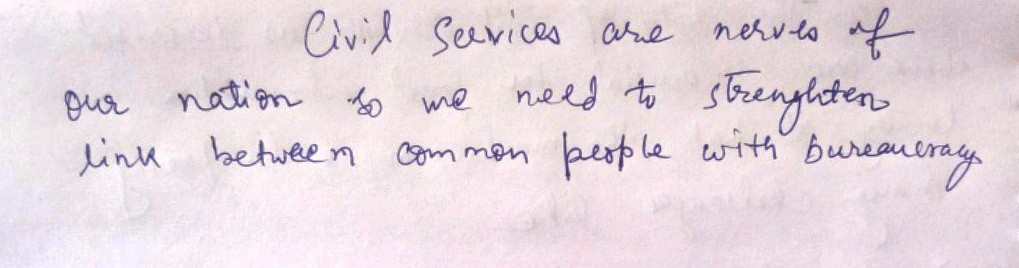 Civil Services are nerves of
our nation so we need to strenghten
link between common people with bureaucracy